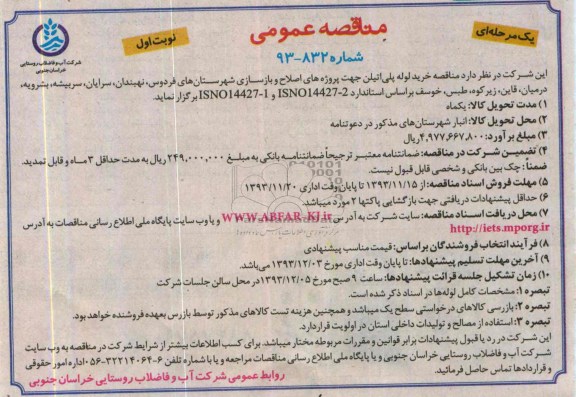 یک مرحله‌ای
مناقصه عمومی
نوبت اول
شماره ۸۳۲-۹۳
شرکت آب و فاضلاب روستایی
خراسان جنوبی
این شرکت در نظر دارد مناقصه خرید لوله پلی اتیلن جهت پروژه های اصلاح و بازسازی شهرستان‌های فردوس، نهبندان، سرایان، سربیشه، بشرویه،
درمیان، قاین، زیرکوه، طبس، خوسف براساس استاندارد ISNO14427-2 و ISNO14427-1 برگزار نماید.
۱) مدت تحویل کالا: یکماه
۲) محل تحویل کالا: انبار شهرستان‌های مذکور در دعوتنامه
۳) مبلغ برآورد: ۴,۹۷۷,۶۶۷,۸۰۰ ریال
۴) تضمین شرکت در مناقصه: ضمانتنامه معتبر ترجیحاً ضمانتنامه بانکی به مبلغ ۲۴۹,۰۰۰,۰۰۰ ریال به مدت حداقل ۳ ماه و قابل تمدید.
ضمناً: چک بین بانکی و شخصی قابل قبول نیست.
۵) مهلت فروش اسناد مناقصه: از ۱۳۹۳/۱۱/۱۵ تا پایان وقت اداری ۱۳۹۳/۱۱/۲۰
۶) حداقل پیشنهادات دریافتی جهت بازگشایی پاکتها ۲ مورد میباشد.
۷) محل دریافت اسناد مناقصه: سایت شرکت به آدرس www.ABFAR-KJ.ir و یا وب سایت پایگاه ملی اطلاع رسانی مناقصات به آدرس
http://iets.mporg.ir
۸) فرآیند انتخاب فروشندگان براساس: قیمت مناسب پیشنهادی
۹) آخرین مهلت تسلیم پیشنهادها: تا پایان وقت اداری مورخ ۱۳۹۳/۱۲/۰۳ می‌باشد.
۱۰) زمان تشکیل جلسه قرائت پیشنهادها: ساعت ۹ صبح مورخ ۱۳۹۳/۱۲/۰۵ در محل سالن جلسات شرکت
تبصره ۱: مشخصات کامل لوله‌ها در اسناد ذکر شده است.
تبصره ۲: بازرسی کالاهای درخواستی سطح یک میباشد و همچنین هزینه تست کالاهای مذکور توسط بازرس بعهده فروشنده خواهد بود.
تبصره ۳: استفاده از مصالح و تولیدات داخلی استان در اولویت قرار دارد.
این شرکت در رد یا قبول پیشنهادات برابر قوانین و مقررات مربوطه مختار میباشد. برای کسب اطلاعات بیشتر از شرایط شرکت در مناقصه به وب سایت
شرکت آب و فاضلاب روستایی خراسان جنوبی و یا پایگاه ملی اطلاع رسانی مناقصات مراجعه و یا با شماره تلفن ۶-۳۲۲۱۴۰۶۴-۰۵۶ اداره امور حقوقی
و قراردادها تماس حاصل فرمائید.
روابط عمومی شرکت آب و فاضلاب روستایی خراسان جنوبی